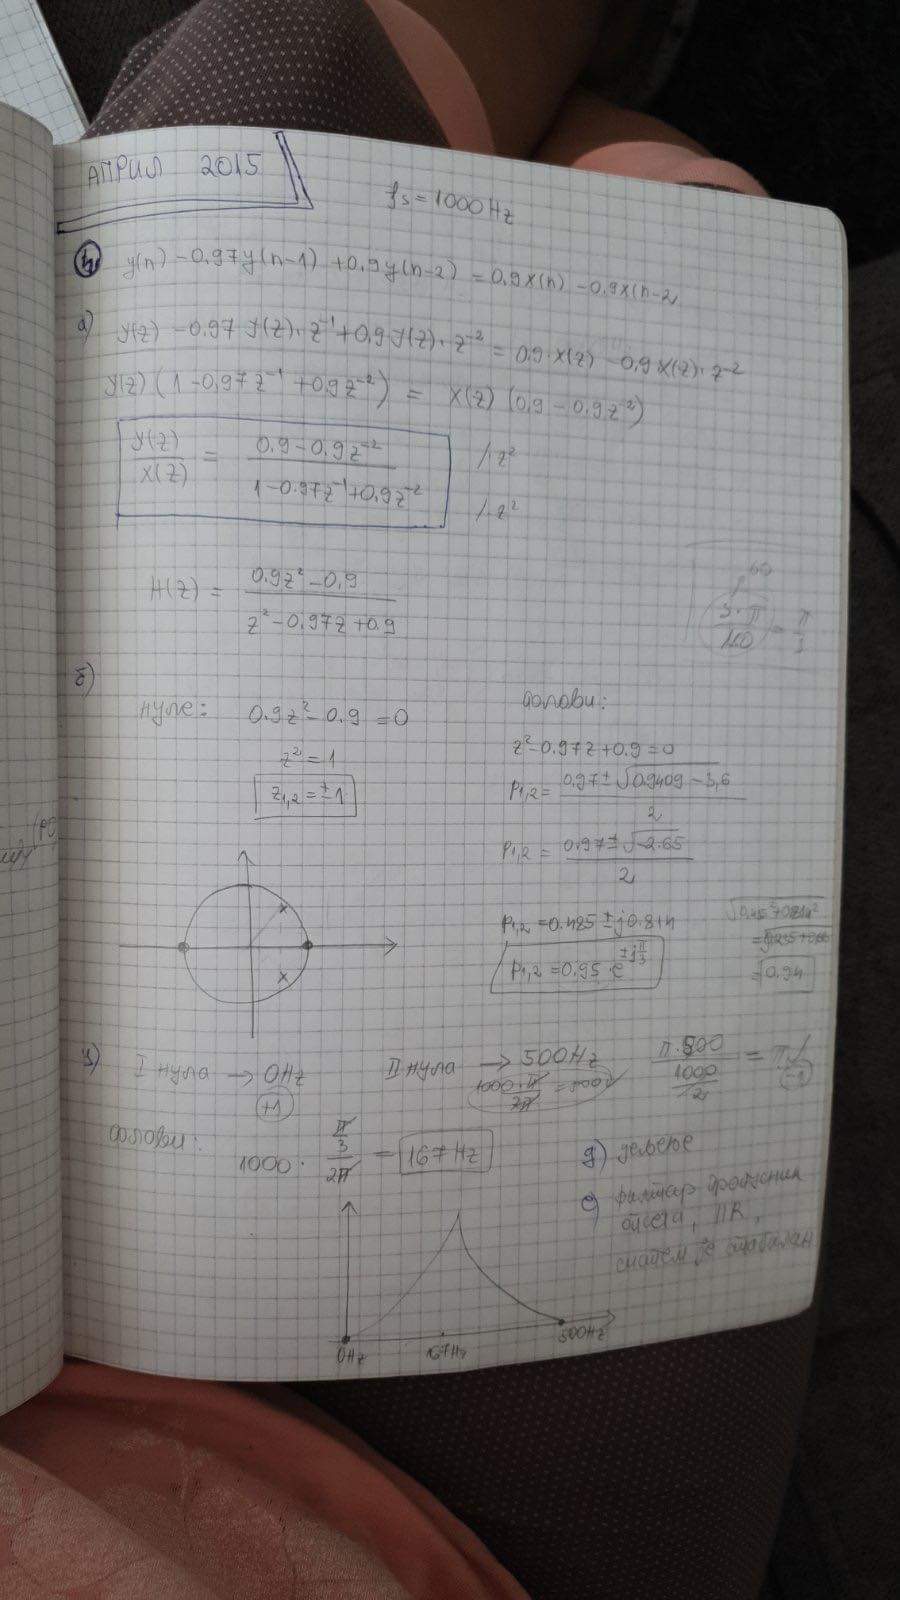 АПРИЛ 2015
fs = 1000 Hz
4
y(n) - 0.97y(n-1) + 0.9y(n-2) = 0.9x(n) - 0.9x(n-2
а)
Y(z) - 0.97 Y(z)·z⁻¹ + 0.9 Y(z)·z⁻² = 0.9·X(z) - 0.9X(z)·z⁻²
Y(z) (1 - 0.97z⁻¹ + 0.9z⁻²) = X(z) (0.9 - 0.9z⁻²)
Y(z)/X(z) = (0.9 - 0.9z⁻²)/(1 - 0.97z⁻¹ + 0.9z⁻²) /·z² /·z²
H(z) = (0.9z² - 0.9)/(z² - 0.97z + 0.9)
60
б)
нуле: 0.9z² - 0.9 = 0
z² = 1
z₁,₂ = ±1
полови:
z² - 0.97z + 0.9 = 0
p₁,₂ = (0.97 ± √(0.9409 - 3,6))/2
p₁,₂ = (0.97 ± √(-2.65))/2
p₁,₂ = 0.485 ± j0.814
p₁,₂ = 0,95·e^(±jπ/3)
0.94
ц)
I нула → 0Hz
+1
II нула → 500Hz
π·500/(1000/2) = π
-1
полови:
1000 · (π/3)/(2π) = 167 Hz
0Hz 167Hz 500Hz
д) дељење
е) филтар пропусник
опсега, IIR,
систем је стабилан